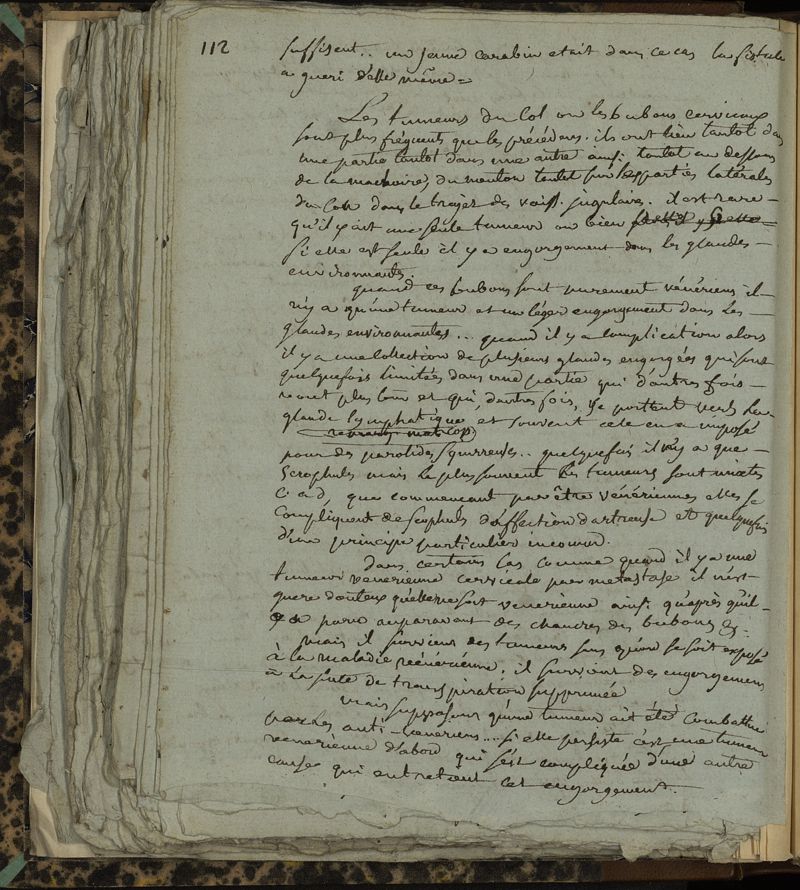 112
suffisent.. un jeune carabin etait dans ce cas la fistule
a gueri d'elle même =
Les tumeurs du Col ou les bubons cervicaux
sont plus fréquents que les précédens. ils ont lieu tantot dans
une partie tantot dans une autre ainsi tantot au dessous
de la machoire, du menton tantot sur les parties latérales
du Col dans le trajet des vaiss. jugulaires. il est rare
qu'il y ait une seule tumeur ou bien
si elle est seule il y a engorgement dans les glandes
environnantes.
quand ces bubons sont purement vénériens il
n'y a qu'une tumeur et un léger engorgement dans les
glandes environnantes... quand il y a complication alors
il y a une collection de plusieurs glandes engorgées qui sont
quelquefois limitées dans une partie qui d'autres fois
vont plus loin et qui, d'autres fois, se portent vers la
glande lymphatique et souvent cela en a imposé
pour des parotides squirreuses.. quelquefois il n'y a que
Scrophules mais le plus souvent les tumeurs sont mixtes
C. a d, que commencant par être vénériennes elles se
Compliquent de Scophuls d'affection dartreuse et quelquefois
d'un principe particulier inconnu.
Dans certains Cas comme quand il y a une
tumeur venerienne cervicale par metastase il n'est
quere douteux qu'elle ne soit venerienne ainsi qu'après qu'il
a paru auparavant des chancres des bubons &.
mais il survient des tumeurs sans qu'on se soit exposé
à la maladie vénérienne. il survient des engorgemens
a la suite de transpiration supprimée
mais supposons qu'une tumeur ait été Combattue
par les anti-veneriens.... si elle persiste c'est une tumeur
venerienne d'abord qui s'est compliquée d'une autre
cause qui entretient cet engorgement.